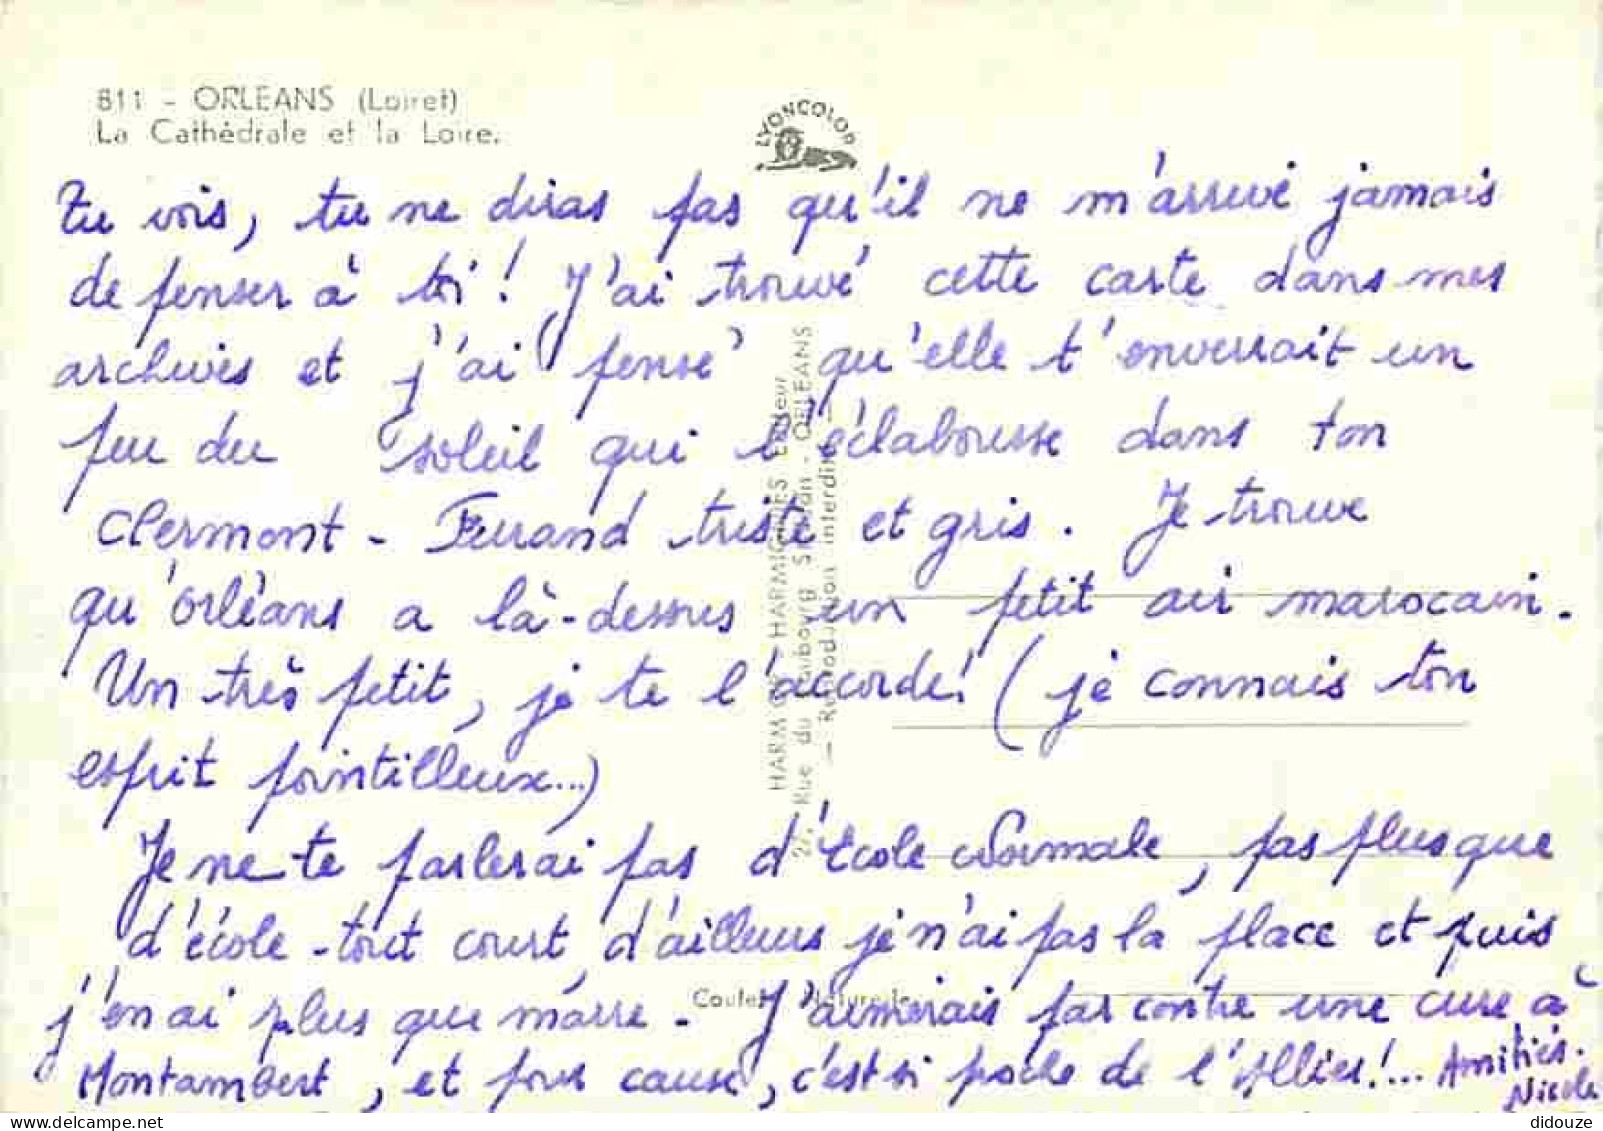 811 - ORLEANS (Loiret)
La Cathédrale et la Loire.
LYONCOLOR
Tu vois, tu ne diras pas qu'il ne m'arrive jamais
de penser à toi ! J'ai trouvé cette carte dans mes
archives et j'ai pensé qu'elle t'enverrait un
peu du soleil qui l'éclabousse dans ton
Clermont-Ferrand triste et gris. Je trouve
qu'Orléans a là-dessus un petit air marocain.
Un très petit, je te l'accorde! (je connais ton
esprit pointilleux...)
Je ne te parlerai pas d'École Normale, pas plus que
d'école tout court, d'ailleurs je n'ai pas la place et puis
j'en ai plus que marre. J'aimerais par contre une cure à
Montambert, et pour cause, c'est si proche de l'Allier!...
Amitiés.
Nicole
HARMIGNIES Editeur
27, Rue du Faubourg - ORLEANS
— Reproduction interdite —
didouze